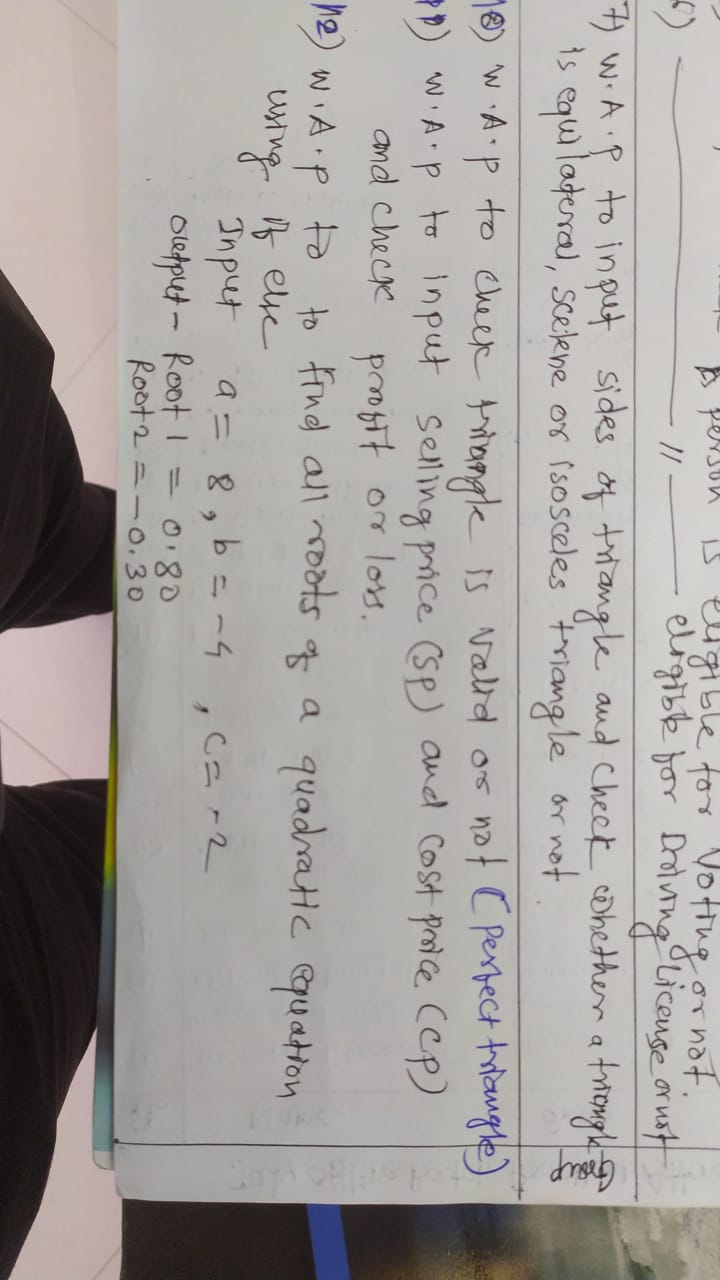 person is eligible for Voting or not.
6) ——— 11 ——— eligible for Driving License or not
7) W.A.P to input sides of triangle and check whether a triangle
is equilateral, scelene or isosceles triangle or not.
Group
10) W.A.P to check triangle is valid or not (perfect triangle)
11) W.A.P to input selling price (SP) and cost price (CP)
and check profit or loss.
12) W.A.P to to find all roots of a quadratic equation
using if else
Input a = 8, b = -4, c = -2
output - Root 1 = 0.80
Root 2 = -0.30